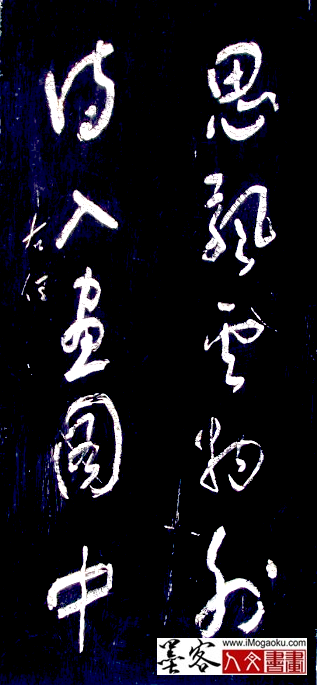 思飘云物外
诗入画图中
墨客
www.iMogaoku.com
人文书画